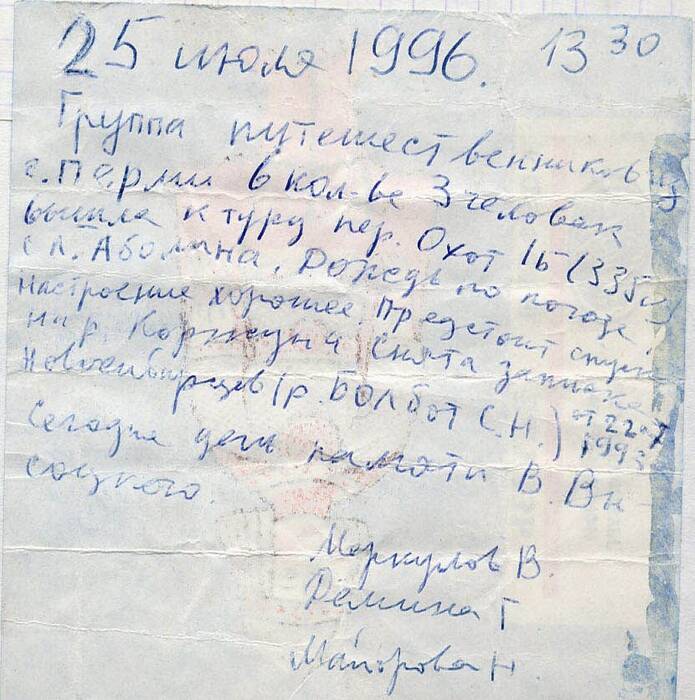 25 июля 1996. 13 30
Группа путешественников из
г. Перми в кол-ве 3 человек
вышла к туру пер. Охот 1Б (335
с л. Аболина. Дождь по погоде,
настроение хорошее. Предстоит спуск
на р. Коржуна снята записка
Новосибирцев (р. Болбот С.Н.) от 22.7
1993
Сегодня день памяти В. Вы-
соцкого.
Меркулов В.
Демина Г
Майорова Н.